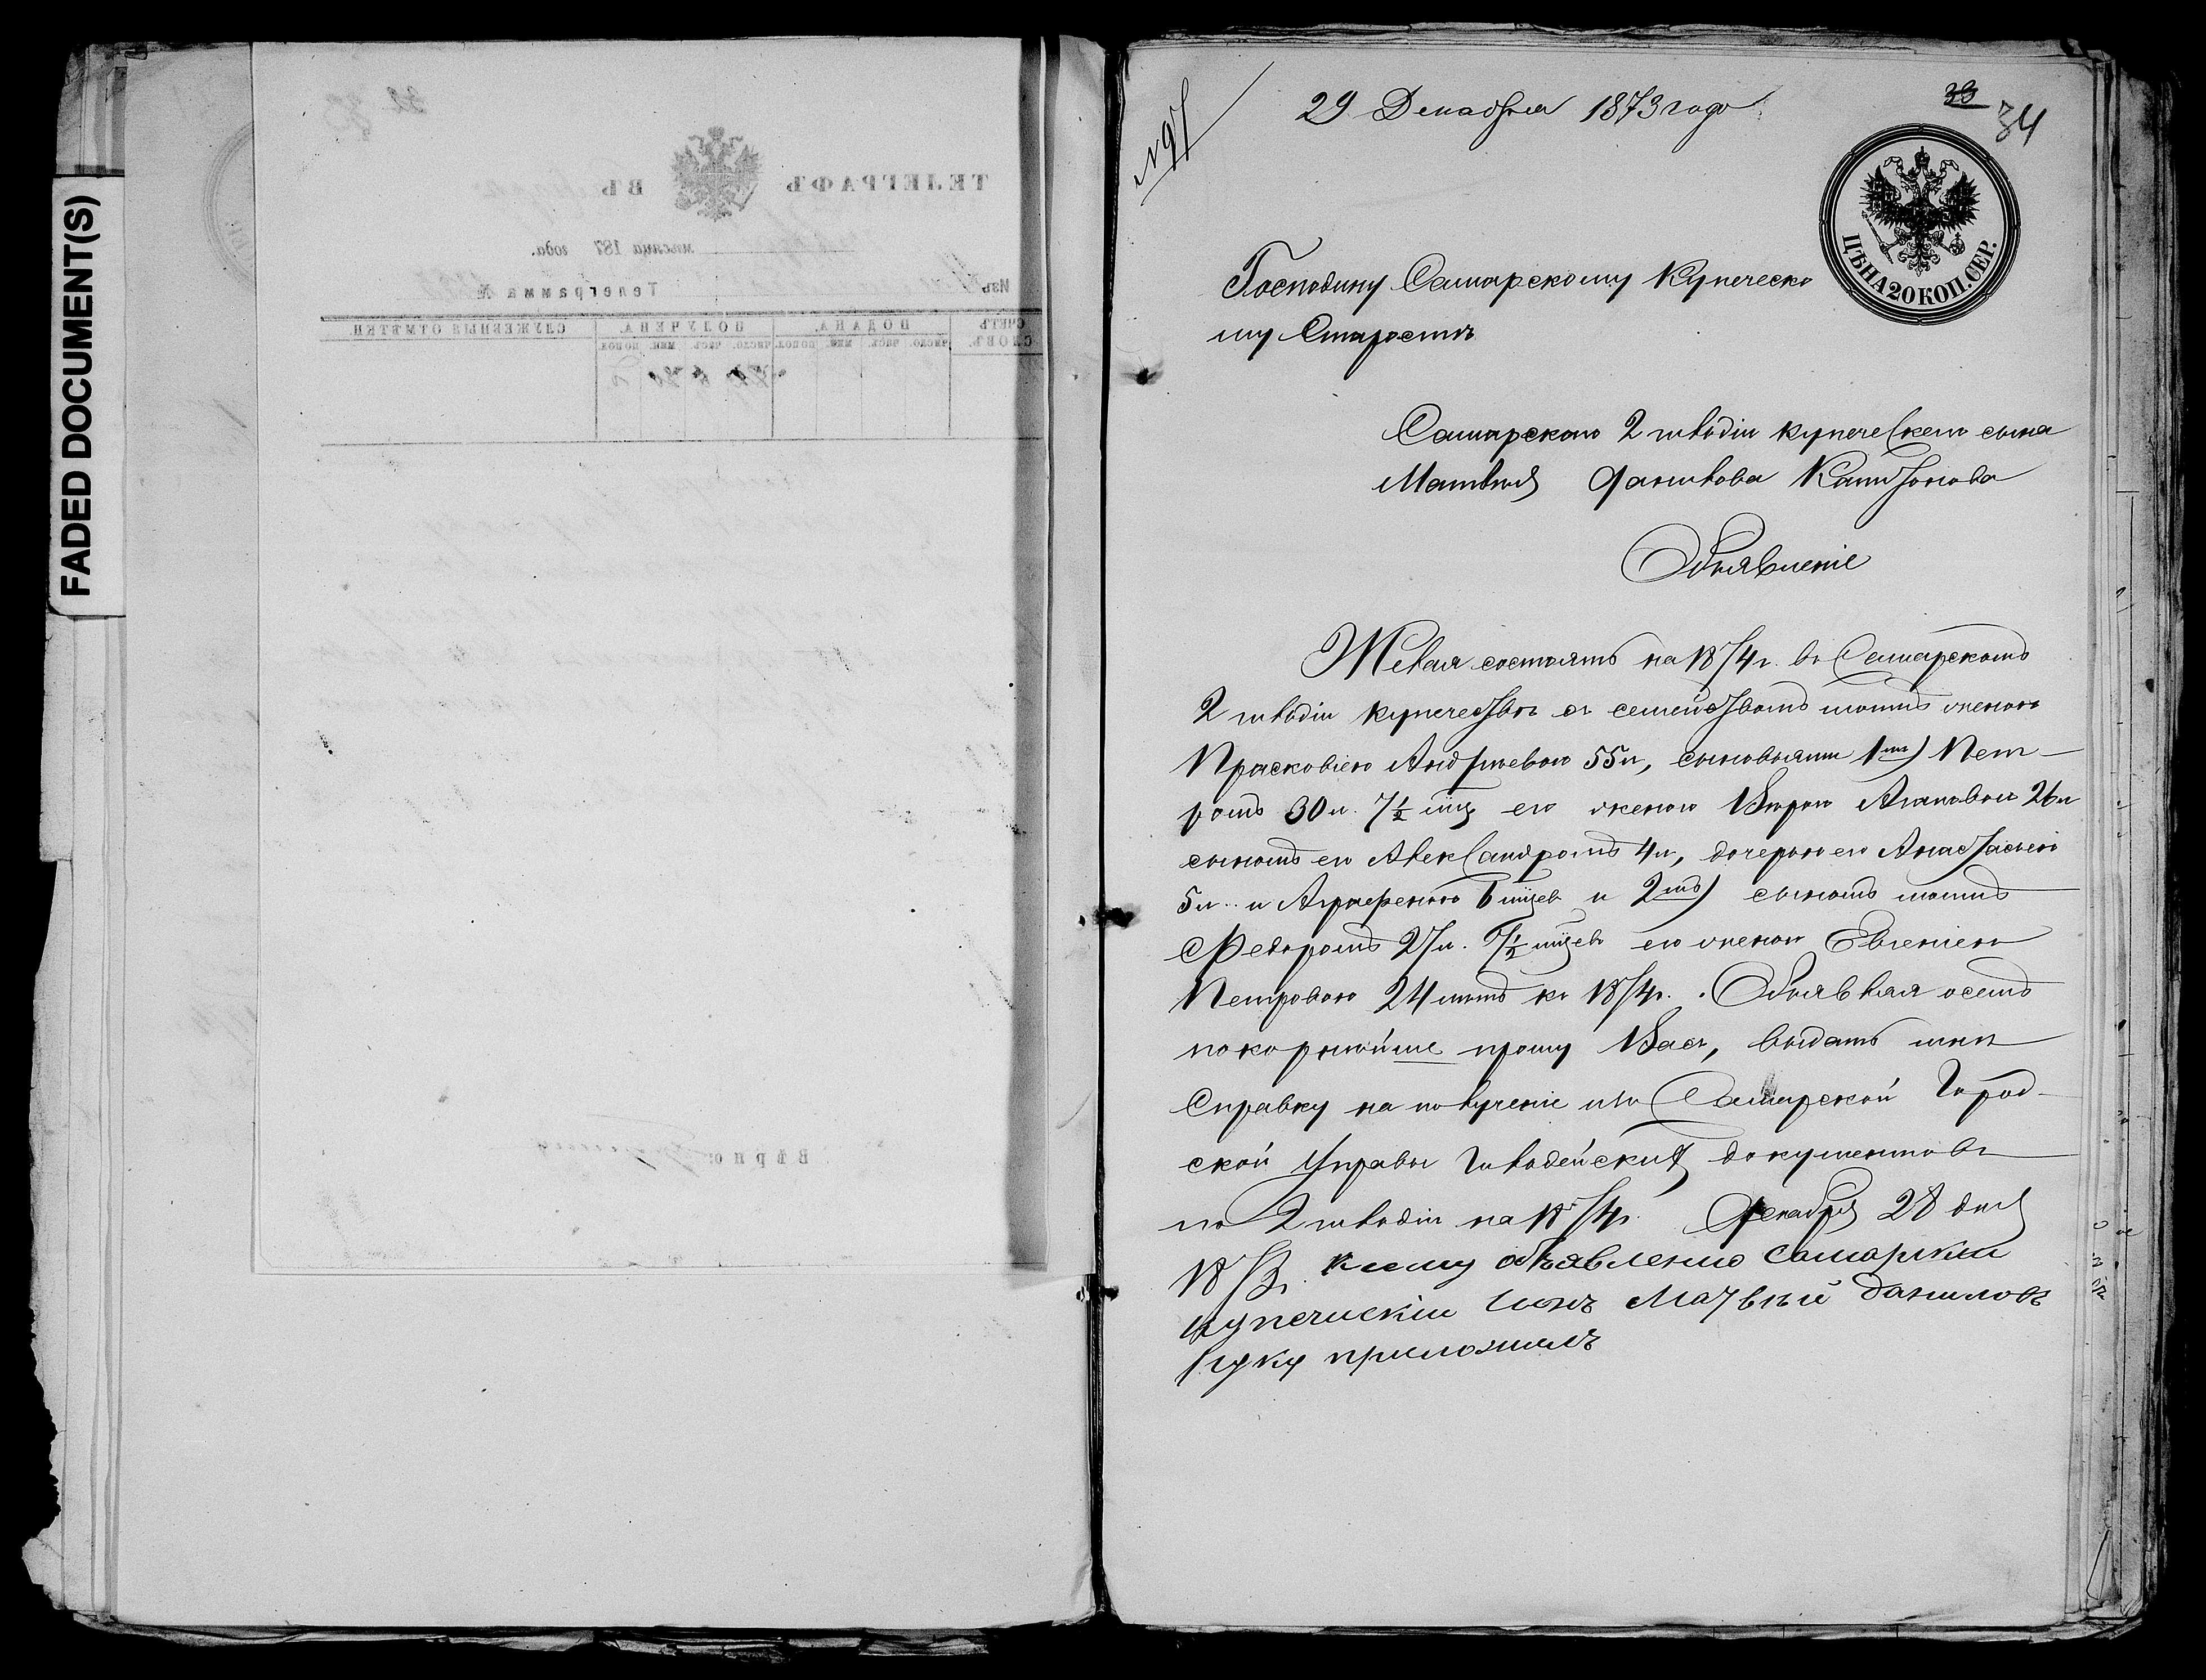 FADED DOCUMENT(S)
ТЕЛЕГРАФЪ ВЪ
мѣсяца 187 года.
Изъ
Телеграмма №
СЧЕТЪ СЛОВЪ. ПОДАНА. ПОЛУЧЕНА. СЛУЖЕБНЫЯ ОТМѢТКИ
ЧИСЛО. ЧАСЫ. МИН. ПОПОЛ. ЧИСЛО. ЧАСЫ. МИН. ПОПОЛ.
Вѣрно:
N 97
29 Декабря 1873 года
33
34
ЦѢНА 20 КОП. СЕР.
Господину Самарскому Купеческо
му Старостѣ
Самарскаго 2 гильдіи купеческаго сына
Матвѣя Данилова
Объявленіе
Желая состоять на 1874 г. въ Самарскомъ
2 гильдіи купечествѣ съ семействомъ моимъ женою
Прасковіею Андреевою 55 л, сыновьями 1мъ) Пет-
ромъ 30 л. 7½ мцъ его женою Вѣрою 26 л
сыномъ его Александромъ 4 л, дочерью его Анастасіею
5 л. и Аграфеною 6 мцев и 2мъ) сыномъ моимъ
Федоромъ 27 л. 7½ мцевъ его женою Евгеніею
Петровою 24 лѣтъ къ 1874 г. Объявляя о семъ
покорнѣйше прошу Васъ, выдать мнѣ
справку на полученіе изъ Самарской Город-
ской Управы Гильдейскихъ документовъ
по 2 гильдіи на 1874 г. Декабря 28 дня
1873 г. К сему объявлению самарский
купечиский сынъ Матвѣй Даниловъ
руку приложилъ